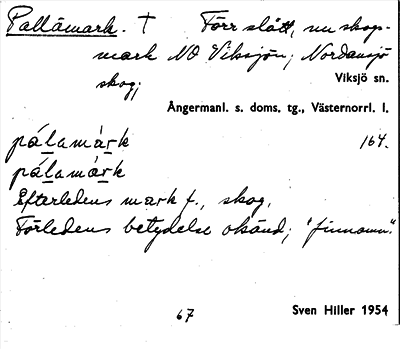 Pallåmark. † Förr slått, nu skogs-
mark NO Viksjön; Nordansjö
skog; Viksjö sn.
Ångermanl. s. doms. tg., Västernorrl. l.
pálamàrk 164.
pálamàrk
Efterledens mark f., skog.
Förledens betydelse okänd; "finnamn".
67 Sven Hiller 1954